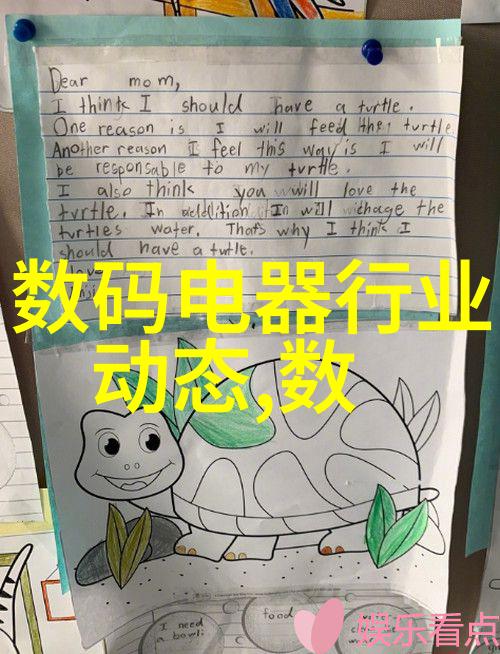 Dear mom,
I think I should have a turtle.
One reason is I will feed the turtle.
Another reason I feel this way is I will
be responsable to my turtle.
I also think you will love the
turtle. In addition I will chage the
turtles water. Thats why I think I
should have a turtle.
数码电器行业
动态,数
I need
a bowl
food
娱乐看点